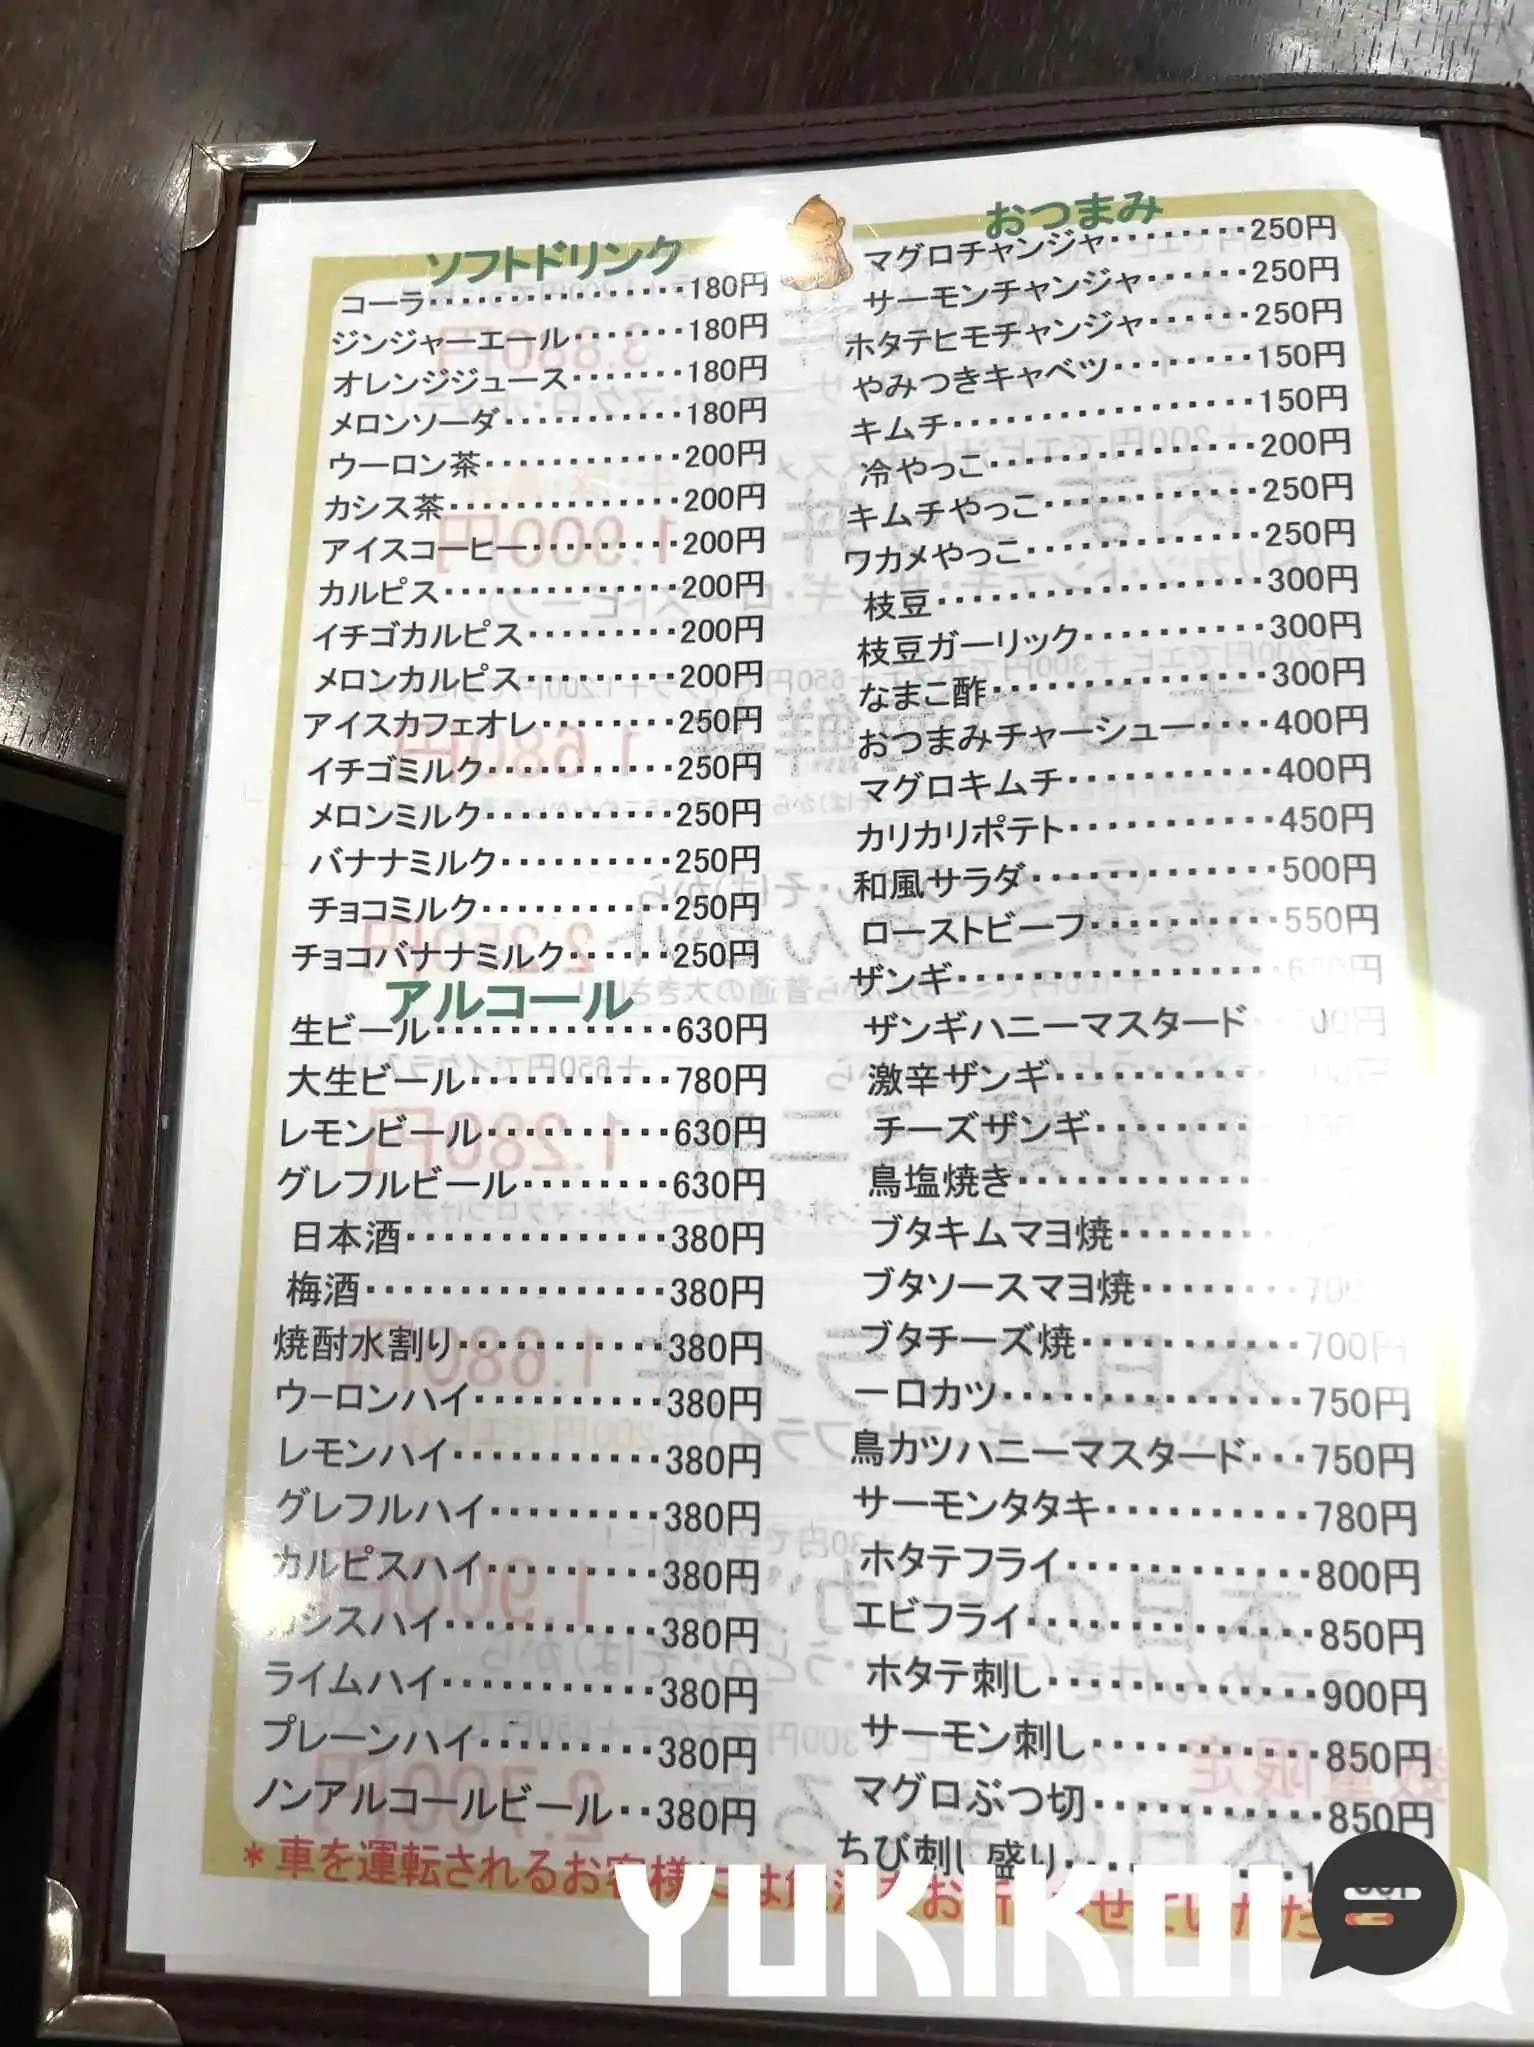 ソフトドリンク
コーラ・・・・・・・・・・・・・・・・180円
ジンジャーエール・・・・・・・180円
オレンジジュース・・・・・・・180円
メロンソーダ・・・・・・・・・・・180円
ウーロン茶・・・・・・・・・・・・200円
カシス茶・・・・・・・・・・・・・・200円
アイスコーヒー・・・・・・・・・200円
カルピス・・・・・・・・・・・・・・200円
イチゴカルピス・・・・・・・・・200円
メロンカルピス・・・・・・・・・200円
アイスカフェオレ・・・・・・・・250円
イチゴミルク・・・・・・・・・・・250円
メロンミルク・・・・・・・・・・・250円
バナナミルク・・・・・・・・・・250円
チョコミルク・・・・・・・・・・・250円
チョコバナナミルク・・・・・250円
アルコール
生ビール・・・・・・・・・・・・・630円
大生ビール・・・・・・・・・・・780円
レモンビール・・・・・・・・・・630円
グレフルビール・・・・・・・・630円
日本酒・・・・・・・・・・・・・・380円
梅酒・・・・・・・・・・・・・・・・380円
焼酎水割り・・・・・・・・・・・380円
ウーロンハイ・・・・・・・・・・380円
レモンハイ・・・・・・・・・・・380円
グレフルハイ・・・・・・・・・380円
カルピスハイ・・・・・・・・・380円
カシスハイ・・・・・・・・・・・380円
ライムハイ・・・・・・・・・・・380円
プレーンハイ・・・・・・・・・380円
ノンアルコールビール・・380円
おつまみ
マグロチャンジャ・・・・・・・・250円
サーモンチャンジャ・・・・・・250円
ホタテヒモチャンジャ・・・・・250円
やみつきキャベツ・・・・・・・150円
キムチ・・・・・・・・・・・・・・・・150円
冷やっこ・・・・・・・・・・・・・・200円
キムチやっこ・・・・・・・・・・・250円
ワカメやっこ・・・・・・・・・・・・250円
枝豆・・・・・・・・・・・・・・・・・300円
枝豆ガーリック・・・・・・・・・・300円
なまこ酢・・・・・・・・・・・・・・300円
おつまみチャーシュー・・・・400円
マグロキムチ・・・・・・・・・・・400円
カリカリポテト・・・・・・・・・・・450円
和風サラダ・・・・・・・・・・・・・500円
ローストビーフ・・・・・・・・・・550円
ザンギ・・・・・・・・・・・・・・・・
ザンギハニーマスタード
激辛ザンギ・・・・・・・・・・
チーズザンギ・・・・・・・・
鳥塩焼き・・・・・・・・・・・・・
ブタキムマヨ焼・・・・・・・・
ブタソースマヨ焼・・・・・・・・700
ブタチーズ焼・・・・・・・・・・・700円
一口カツ・・・・・・・・・・・・・・・750円
鳥カツハニーマスタード・・・750円
サーモンタタキ・・・・・・・・・・780円
ホタテフライ・・・・・・・・・・・・800円
エビフライ・・・・・・・・・・・・・・850円
ホタテ刺し・・・・・・・・・・・・・900円
サーモン刺し・・・・・・・・・・・850円
マグロぶつ切・・・・・・・・・・・850円
ちび刺し盛り
*車を運転されるお客様には
YUKIKOI